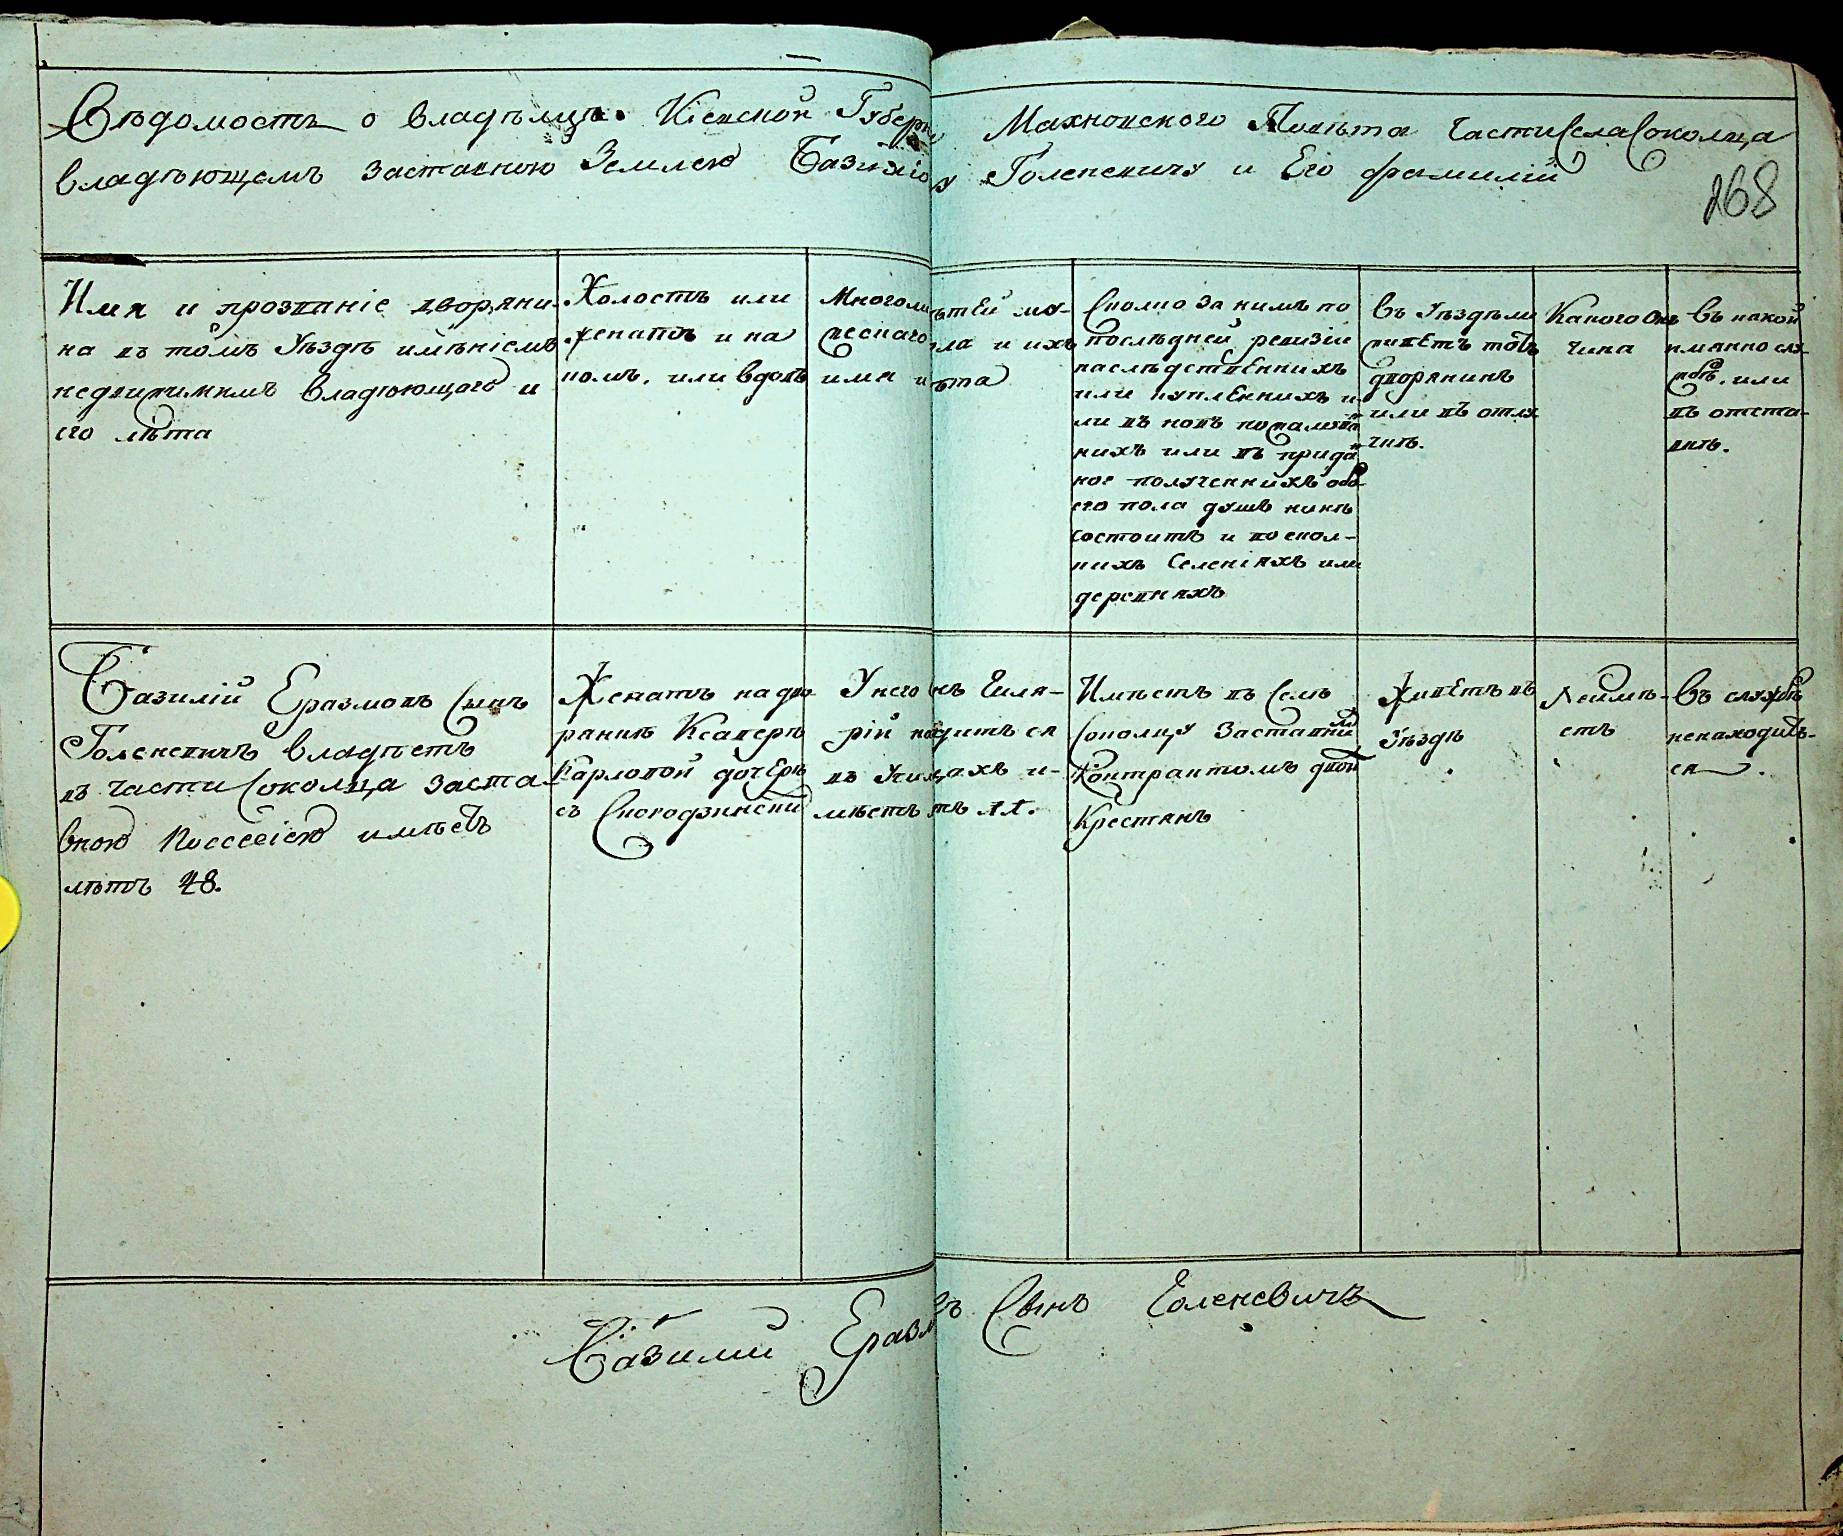 Вѣдомость о владѣльцѣ Кіевской Губерн Махновского Повѣта части села Соколца
владѣющемъ заставною Землею Базилію Голеневичу и Его фамиліи
268
Имя и прозваніе дворяни-
на въ томъ Уѣздѣ имѣніемъ
недвижимимъ владѣющого и
его лѣта
Холостъ или
женатъ и на
комъ. или вдовъ
Много ли ѣтей му-
жеского ла и ихъ
имя и ѣта
Сколко за нимъ по
послѣдней ревизіи
наслѣдственнихъ
или купленнихъ и-
ли въ новъ пожалова
нихъ или въ прида
ное полученнихъ обо-
его пола душъ нинѣ
состоитъ и въ екол-
кихъ Селеніяхъ или
деревняхъ
Въ Уѣздѣ ли
живетъ тотъ
дворянинъ
или въ отлу
чкѣ.
Какого Онъ
чина
Въ какой
имянно слу
жбѣ. или
въ отста-
вкѣ.
Базилій Еразмовъ Синъ
Голеневичъ владѣетъ
въ части Соколца заста-
вною Поссесіею имѣетъ
лѣтъ 48.
Женатъ на дво
ранкѣ Ксаверѣ
Карловой дочерѣ
съ Скогодзински
У него нъ Гиля-
рій находится
въ Училищахъ и-
мѣетъ лѣтъ 11.
Имѣетъ въ Селѣ
Соколцу Заставни
мъ
Контрактомъ двои
Крестянъ
Живетъ въ
Уѣздѣ
Неимѣ-
етъ
Въ службѣ
ненаходитъ-
ся.
Базилий Еразмовъ Сынъ Голеневичъ